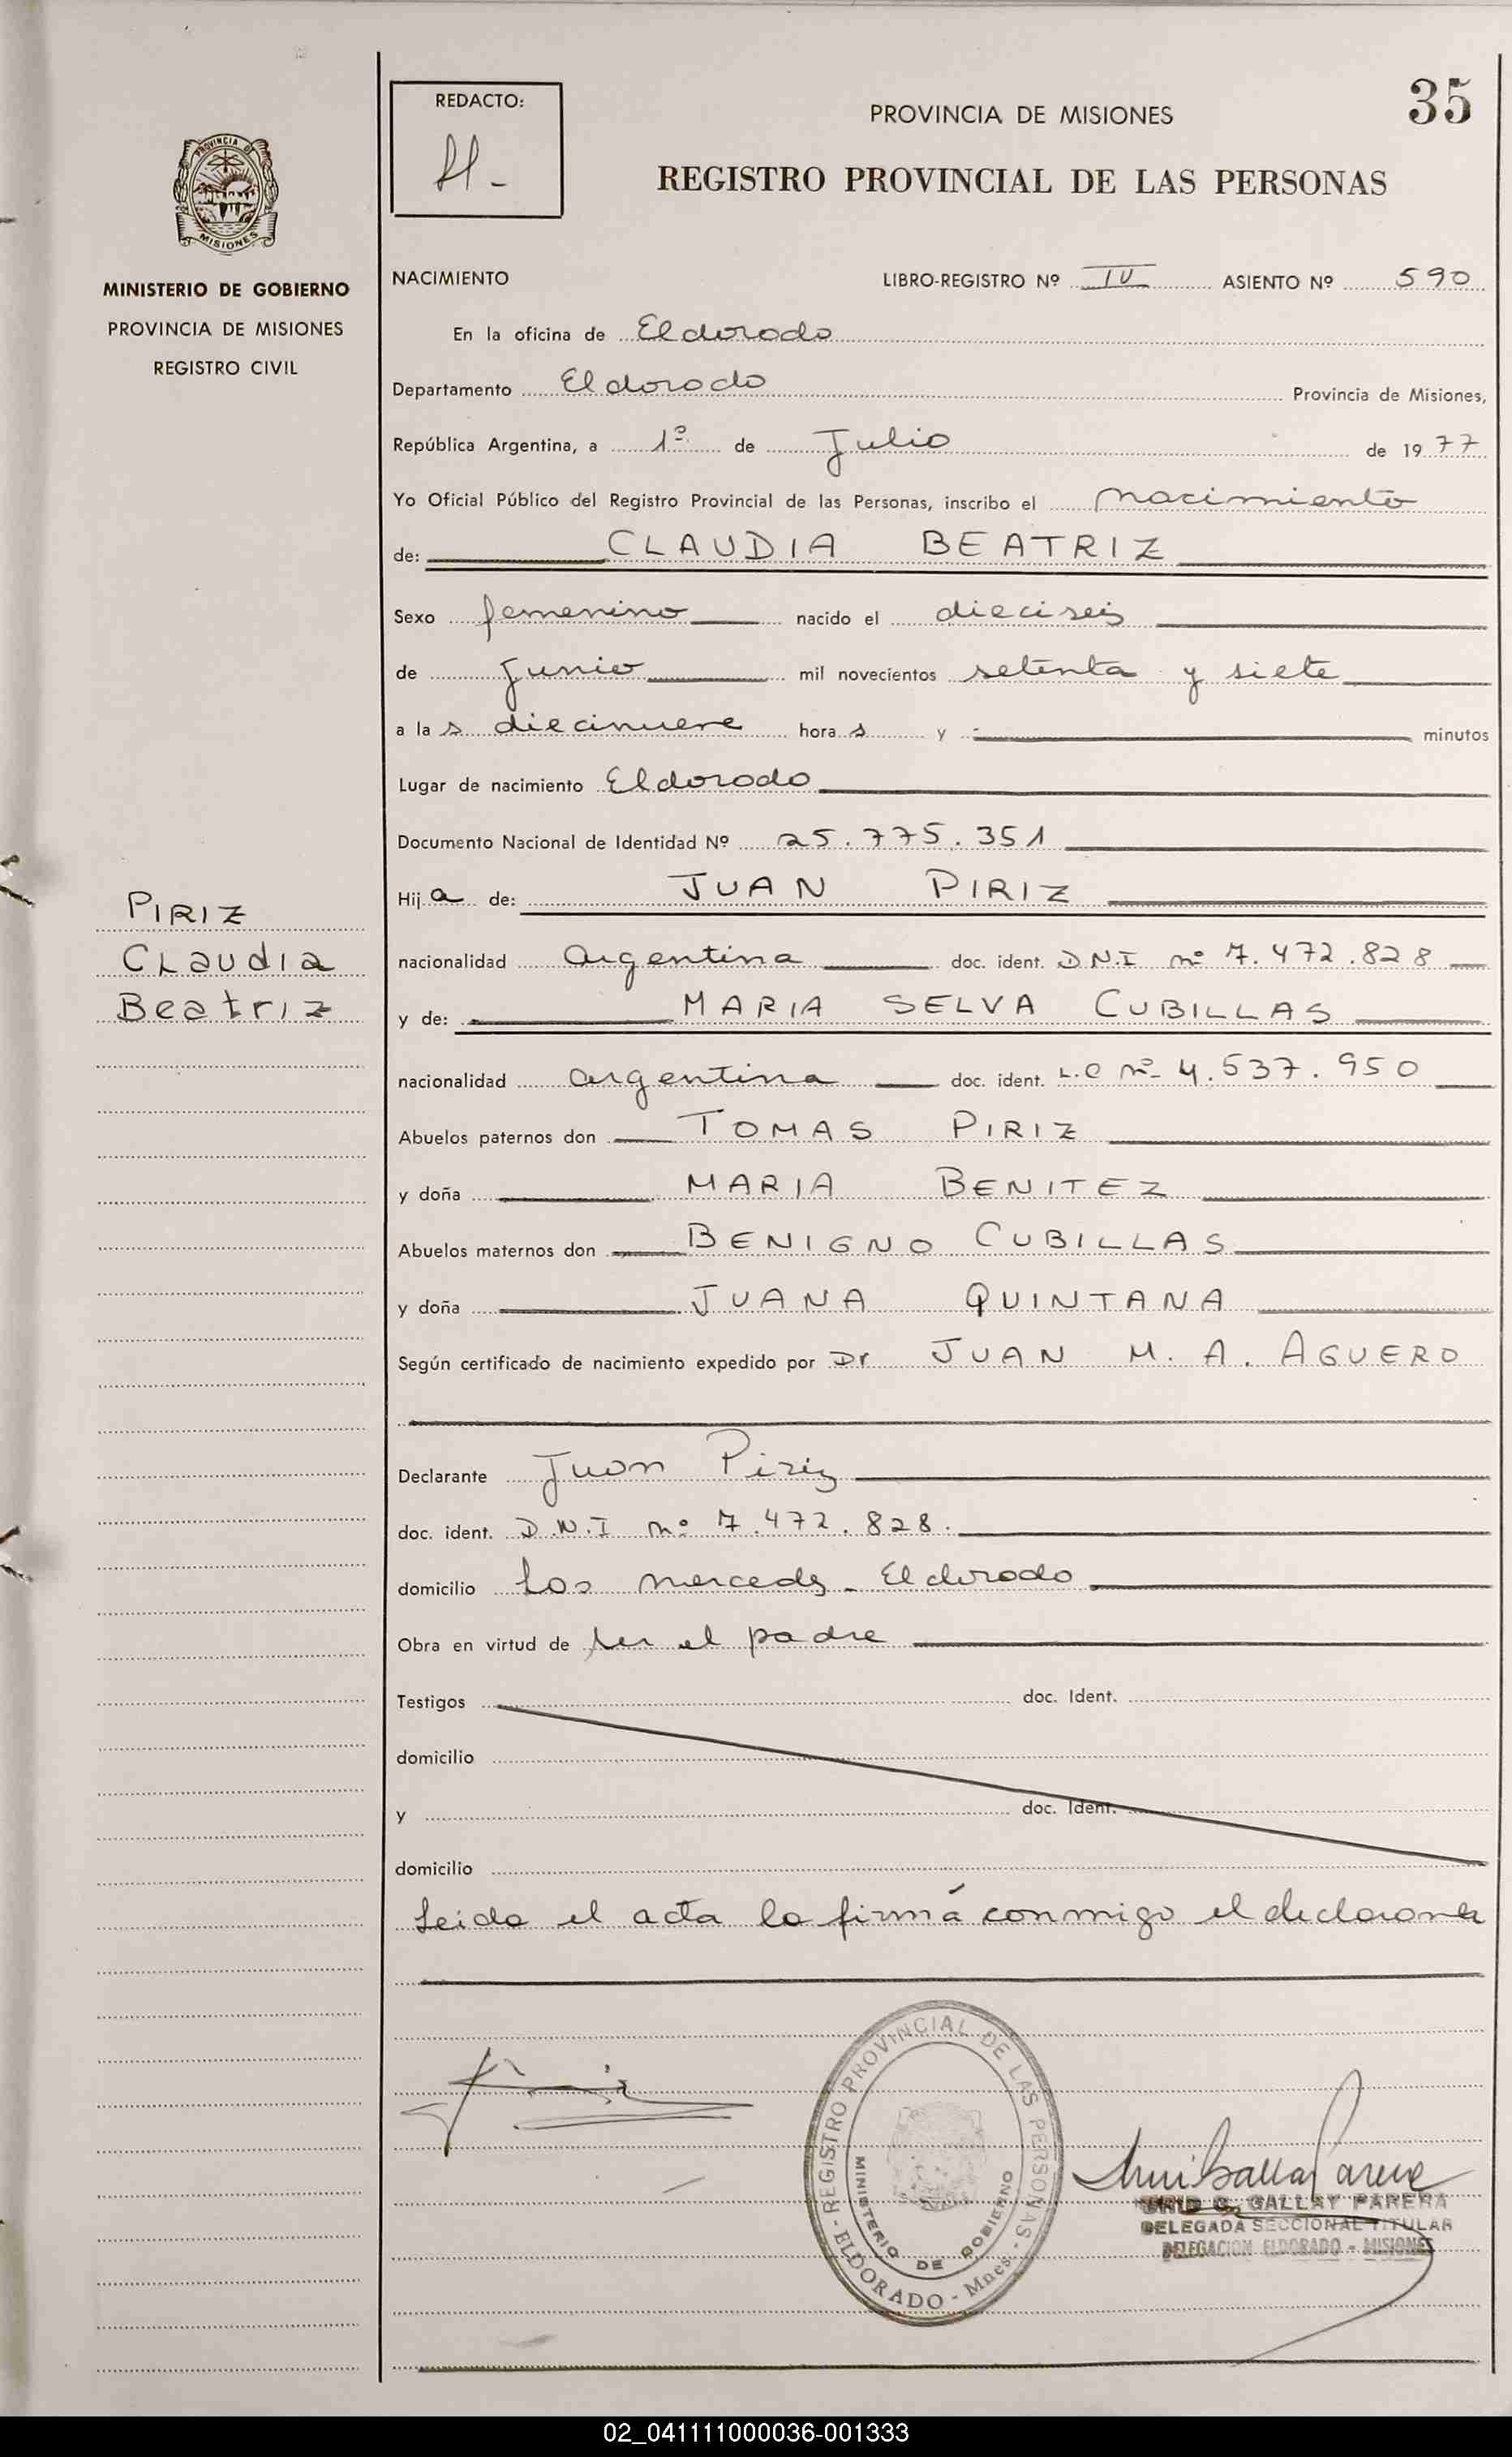 35
REDACTO:
PROVINCIA DE MISIONES
REGISTRO PROVINCIAL DE LAS PERSONAS
PROVINCIA DE
MISIONES
MINISTERIO DE GOBIERNO
PROVINCIA DE MISIONES
REGISTRO CIVIL
NACIMIENTO LIBRO-REGISTRO Nº IV ASIENTO Nº 590
En la oficina de Eldorado
Departamento Eldorado Provincia de Misiones,
República Argentina, a 1º de Julio de 1977
Yo Oficial Público del Registro Provincial de las Personas, inscribo el nacimiento
de: CLAUDIA BEATRIZ
Sexo femenino nacido el dieciseis
de Junio mil novecientos setenta y siete
a las diecinueve horas y - minutos
Lugar de nacimiento Eldorado
Documento Nacional de Identidad Nº 25.775.351
Hija de: JUAN PIRIZ
PIRIZ
Claudia
Beatriz
nacionalidad argentina doc. ident. D.N.I nº 7.472.828
y de: MARIA SELVA CUBILLAS
nacionalidad argentina doc. ident. L.C nº 4.537.950
Abuelos paternos don TOMAS PIRIZ
y doña MARIA BENITEZ
Abuelos maternos don BENIGNO CUBILLAS
y doña JUANA QUINTANA
Según certificado de nacimiento expedido por Dr JUAN M. A. AGUERO
Declarante Juan Piriz
doc. ident. D.N.I nº 7.472.828.
domicilio Las mercedes - Eldorado
Obra en virtud de ser el padre
Testigos doc. Ident.
domicilio
y doc. Ident.
domicilio
Leida el acta la firmá conmigo el declarante
REGISTRO PROVINCIAL DE LAS PERSONAS - ELDORADO - Mnes. -
MINISTERIO DE GOBIERNO
G. GALLAY PARERA
DELEGADA SECCIONAL TITULAR
DELEGACION ELDORADO - MISIONES
02_041111000036-001333